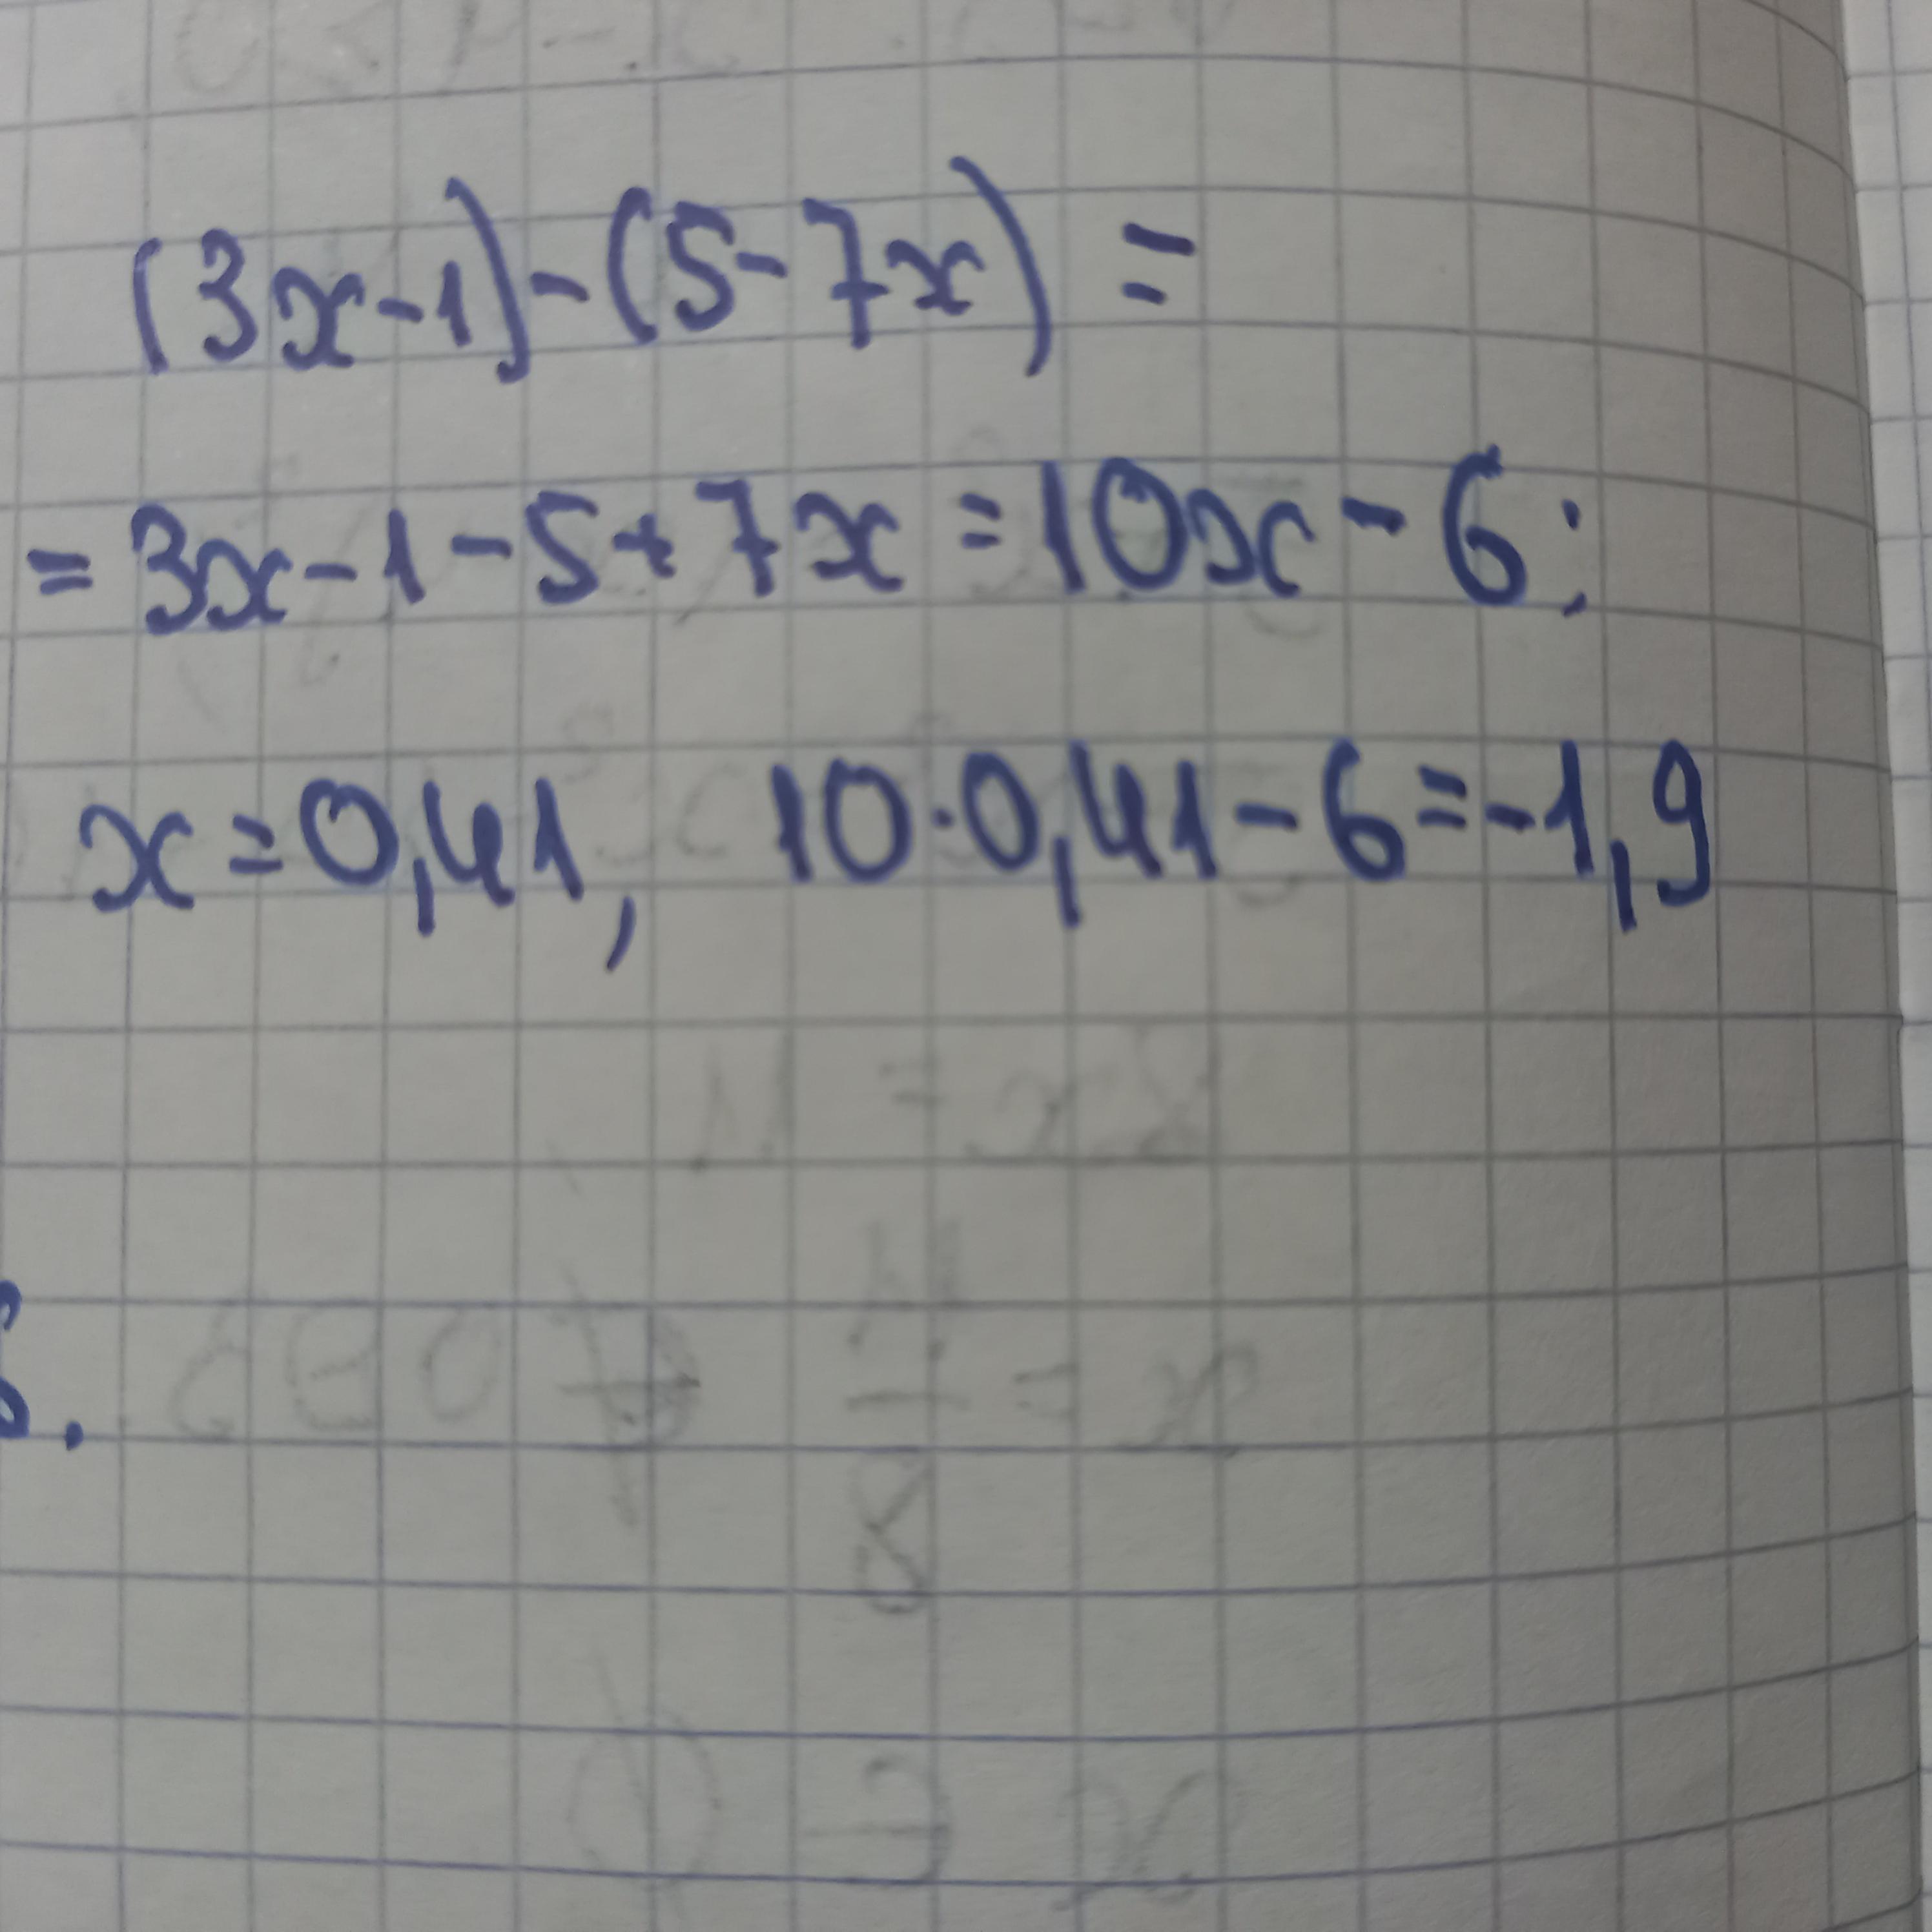 (3x-1)-(5-7x) =
= 3x-1-5+7x = 10x-6;
x=0,41, 10·0,41-6=-1,9